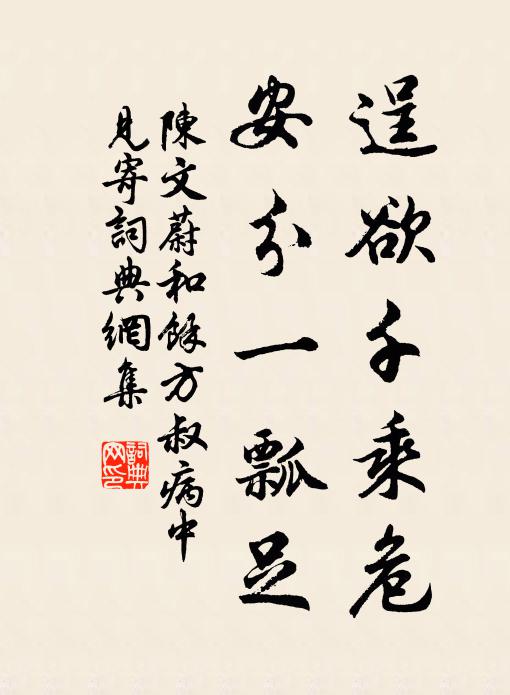 逞欲千乘危
安分一瓢足
陳文蔚和餘方叔病中
見寄詞典網集
詞典网印